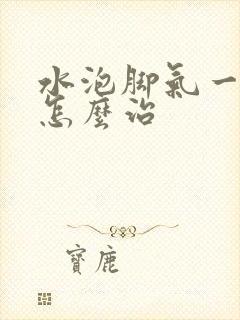 水泡脚氣一
怎麼治
寶鹿